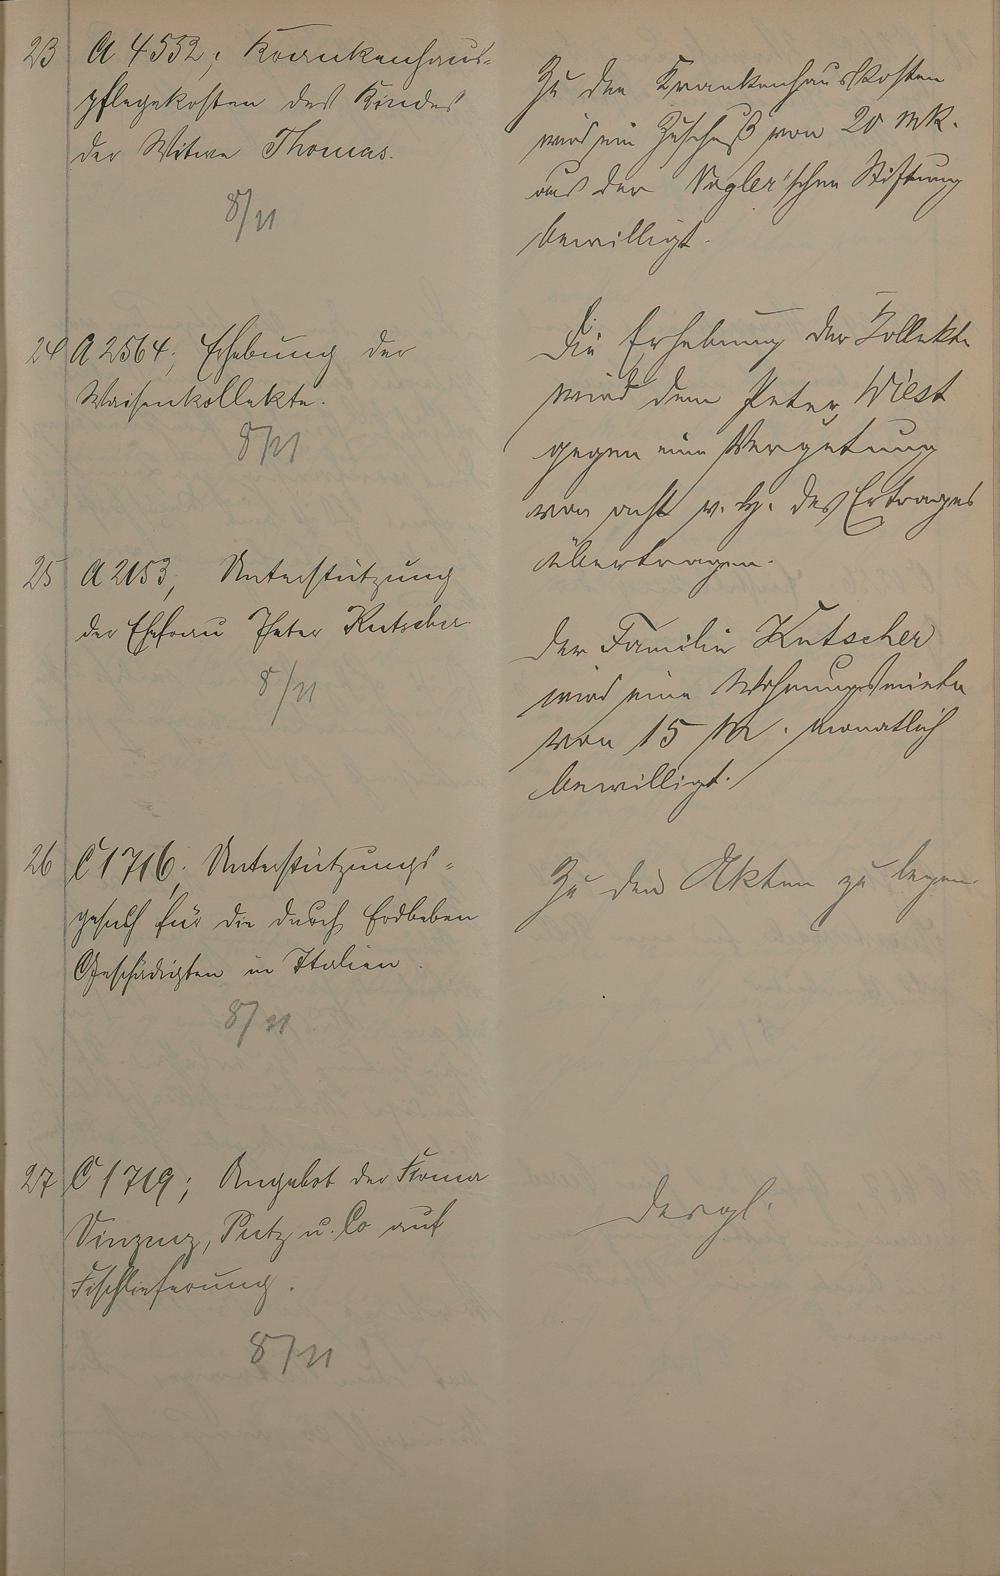 23 A 4532; Krankenhaus-
pflegekosten des Kindes
der Witwe Thomas.
8/11
Zu den Krankenhauskosten
wird ein Zuschuß von 20 Mk.
aus der Vogler'schen Stiftung
bewilligt.
24 A 2564; Erhebung der
Waisenkollekte.
8/11
Die Erhebung der Kollekte
wird dem Peter Wiest
gegen eine Vergütung
von acht v. H. des Ertrages
übertragen.
25 A 2153, Unterstützung
der Ehefrau Peter Kutscher
8/11
Der Familie Kutscher
wird eine Wohnungsmiete
von 15 M. monatlich
bewilligt.
26 C 1716; Unterstützungs-
gesuch für die durch Erdbeben
Geschädigten in Italien.
8/11
Zu den Akten zu legen
27 C 1719; Angebot der Firma
Vinzenz, Putz u. Co auf
Fischlieferung.
8/11
Desgl.